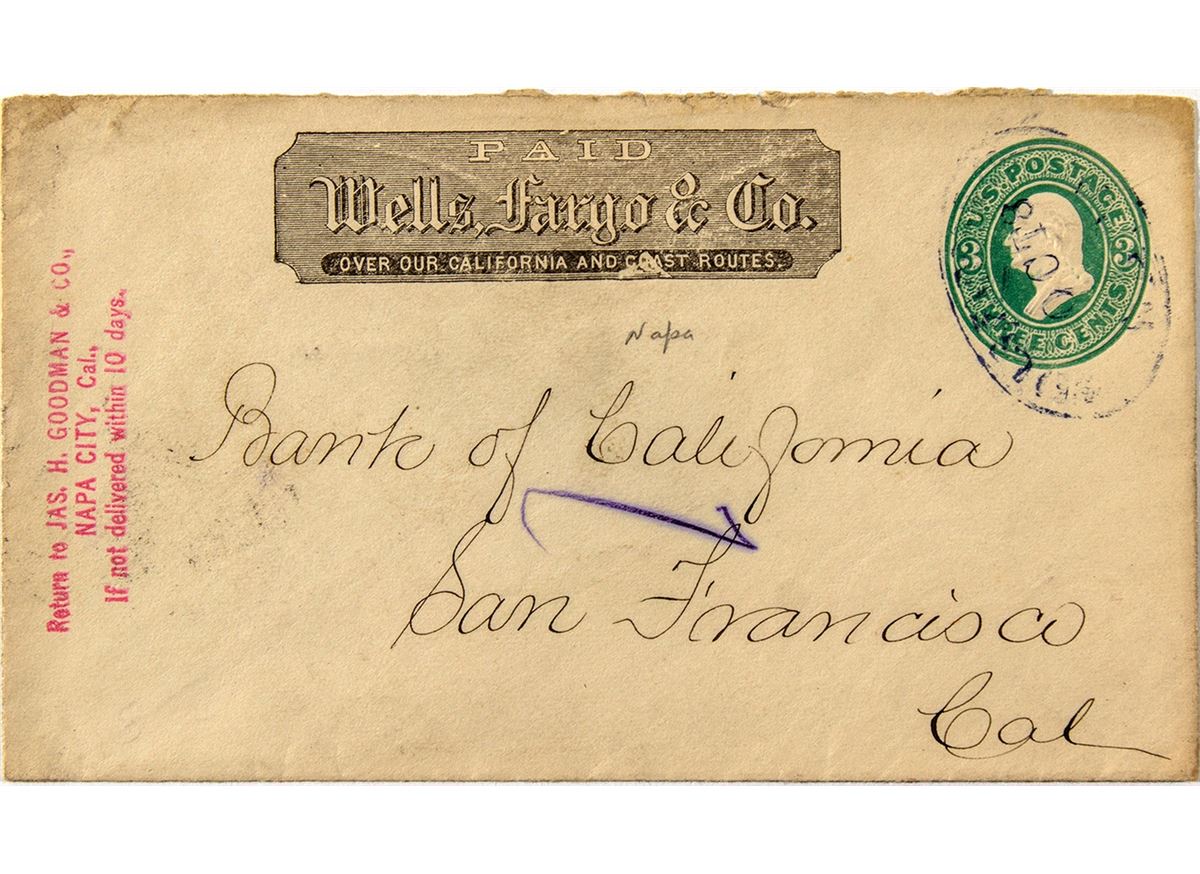 PAID
Wells, Fargo & Co.
OVER OUR CALIFORNIA AND COAST ROUTES.
U.S. POSTAGE
3 3
THREE CENTS
Napa
Bank of California
San Francisco
Cal
Return to JAS. H. GOODMAN & CO.,
NAPA CITY, Cal.,
If not delivered within 10 days.